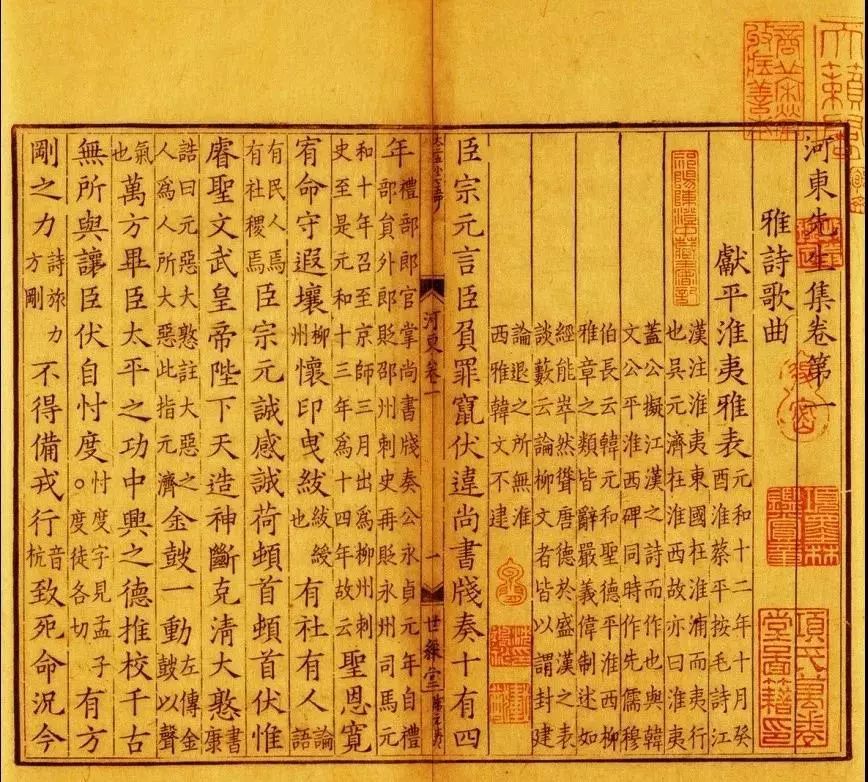 河東先生集卷第一
雅詩歌曲
獻平淮夷雅表 元和十二年十月癸酉淮蔡平按毛詩江
漢注淮夷東國在淮浦而夷行
也吳元濟在淮西故亦曰淮夷
蓋公擬江漢之詩而作也與韓
文公平淮西碑同時作先儒穆
伯長云韓元和聖德平淮西柳
雅章之類皆辭嚴義偉制述如
經能崒然聳唐德於盛漢之表
談藪云論柳文者皆以謂封建
論退之所無淮
西雅韓文不逮
臣宗元言臣負罪竄伏違尚書牋奏十有四
河東卷一
一
世綵堂
年 禮部郎官掌尚書牋奏公永貞元年自禮部員外郎貶邵州刺史再貶永州司馬元
和十年召至京師三月出爲柳州刺史至是元和十三年爲十四年故云 聖恩寬
宥命守遐壤 柳州 懷印曳紱 紱綬也 有社有人 論語
有民人焉有社稷焉 臣宗元誠感誠荷頓首頓首伏惟
睿聖文武皇帝陛下天造神斷克清大憝 書康
誥曰元惡大憝註大惡之人爲人所大惡此指元濟 金鼓一動 左傳金鼓以聲
氣也 萬方畢臣太平之功中興之德推校千古
無所與讓臣伏自忖度 忖度字見孟子。度徒各切 有方
剛之力 詩旅力方剛 不得備戎行 音杭 致死命況今
祁陽陳澄中藏書記
項墨林鑑賞章
項氏萬卷堂圖籍印